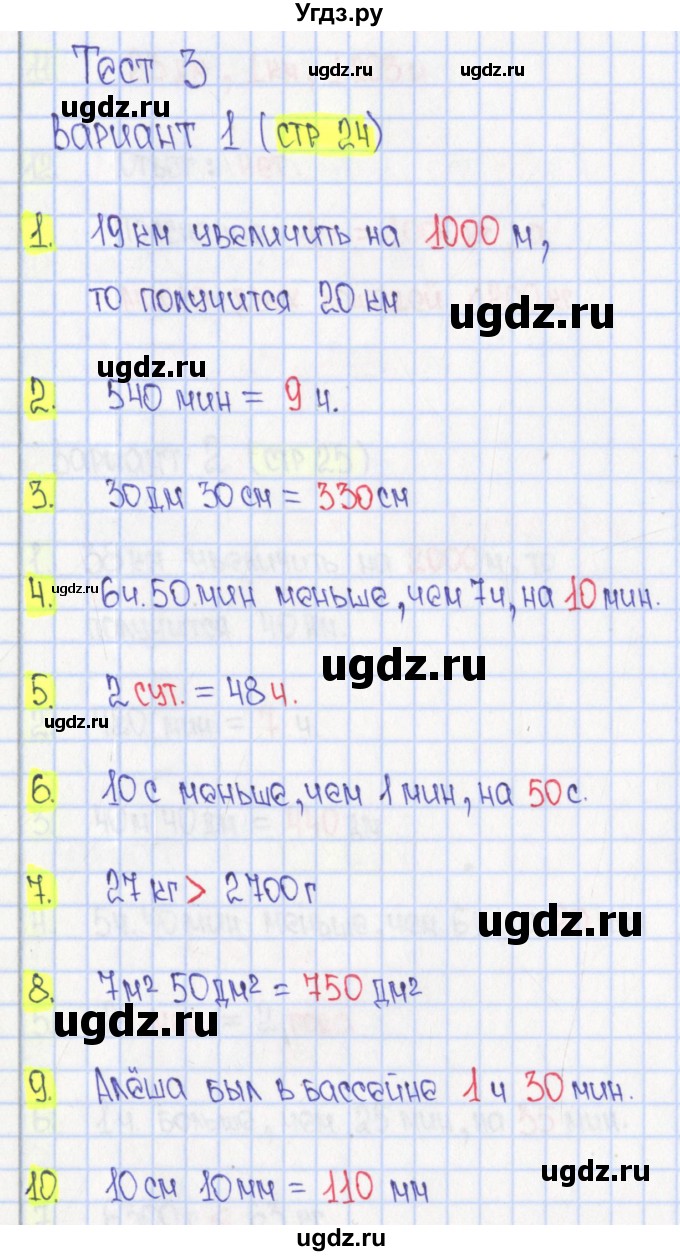 Угдз.ру
Тест 3
ugdz.ru ugdz.ru ugdz.ru
Вариант 1 (стр 24)
1. 19 км увеличить на 1000 м,
то получится 20 км
ugdz.ru
ugdz.ru
2. 540 мин = 9 ч.
3. 30 дм 30 см = 330 см
4. 6ч. 50 мин меньше, чем 7ч, на 10 мин.
ugdz.ru
ugdz.ru
5. 2 сут. = 48 ч.
ugdz.ru
6. 10 с меньше, чем 1 мин, на 50 с.
7. 27 кг > 2700 г
ugdz.ru
8. 7м² 50 дм² = 750 дм²
ugdz.ru
9. Алёша был в бассейне 1 ч 30 мин.
ugdz.ru
10. 10 см 10 мм = 110 мм
ugdz.ru